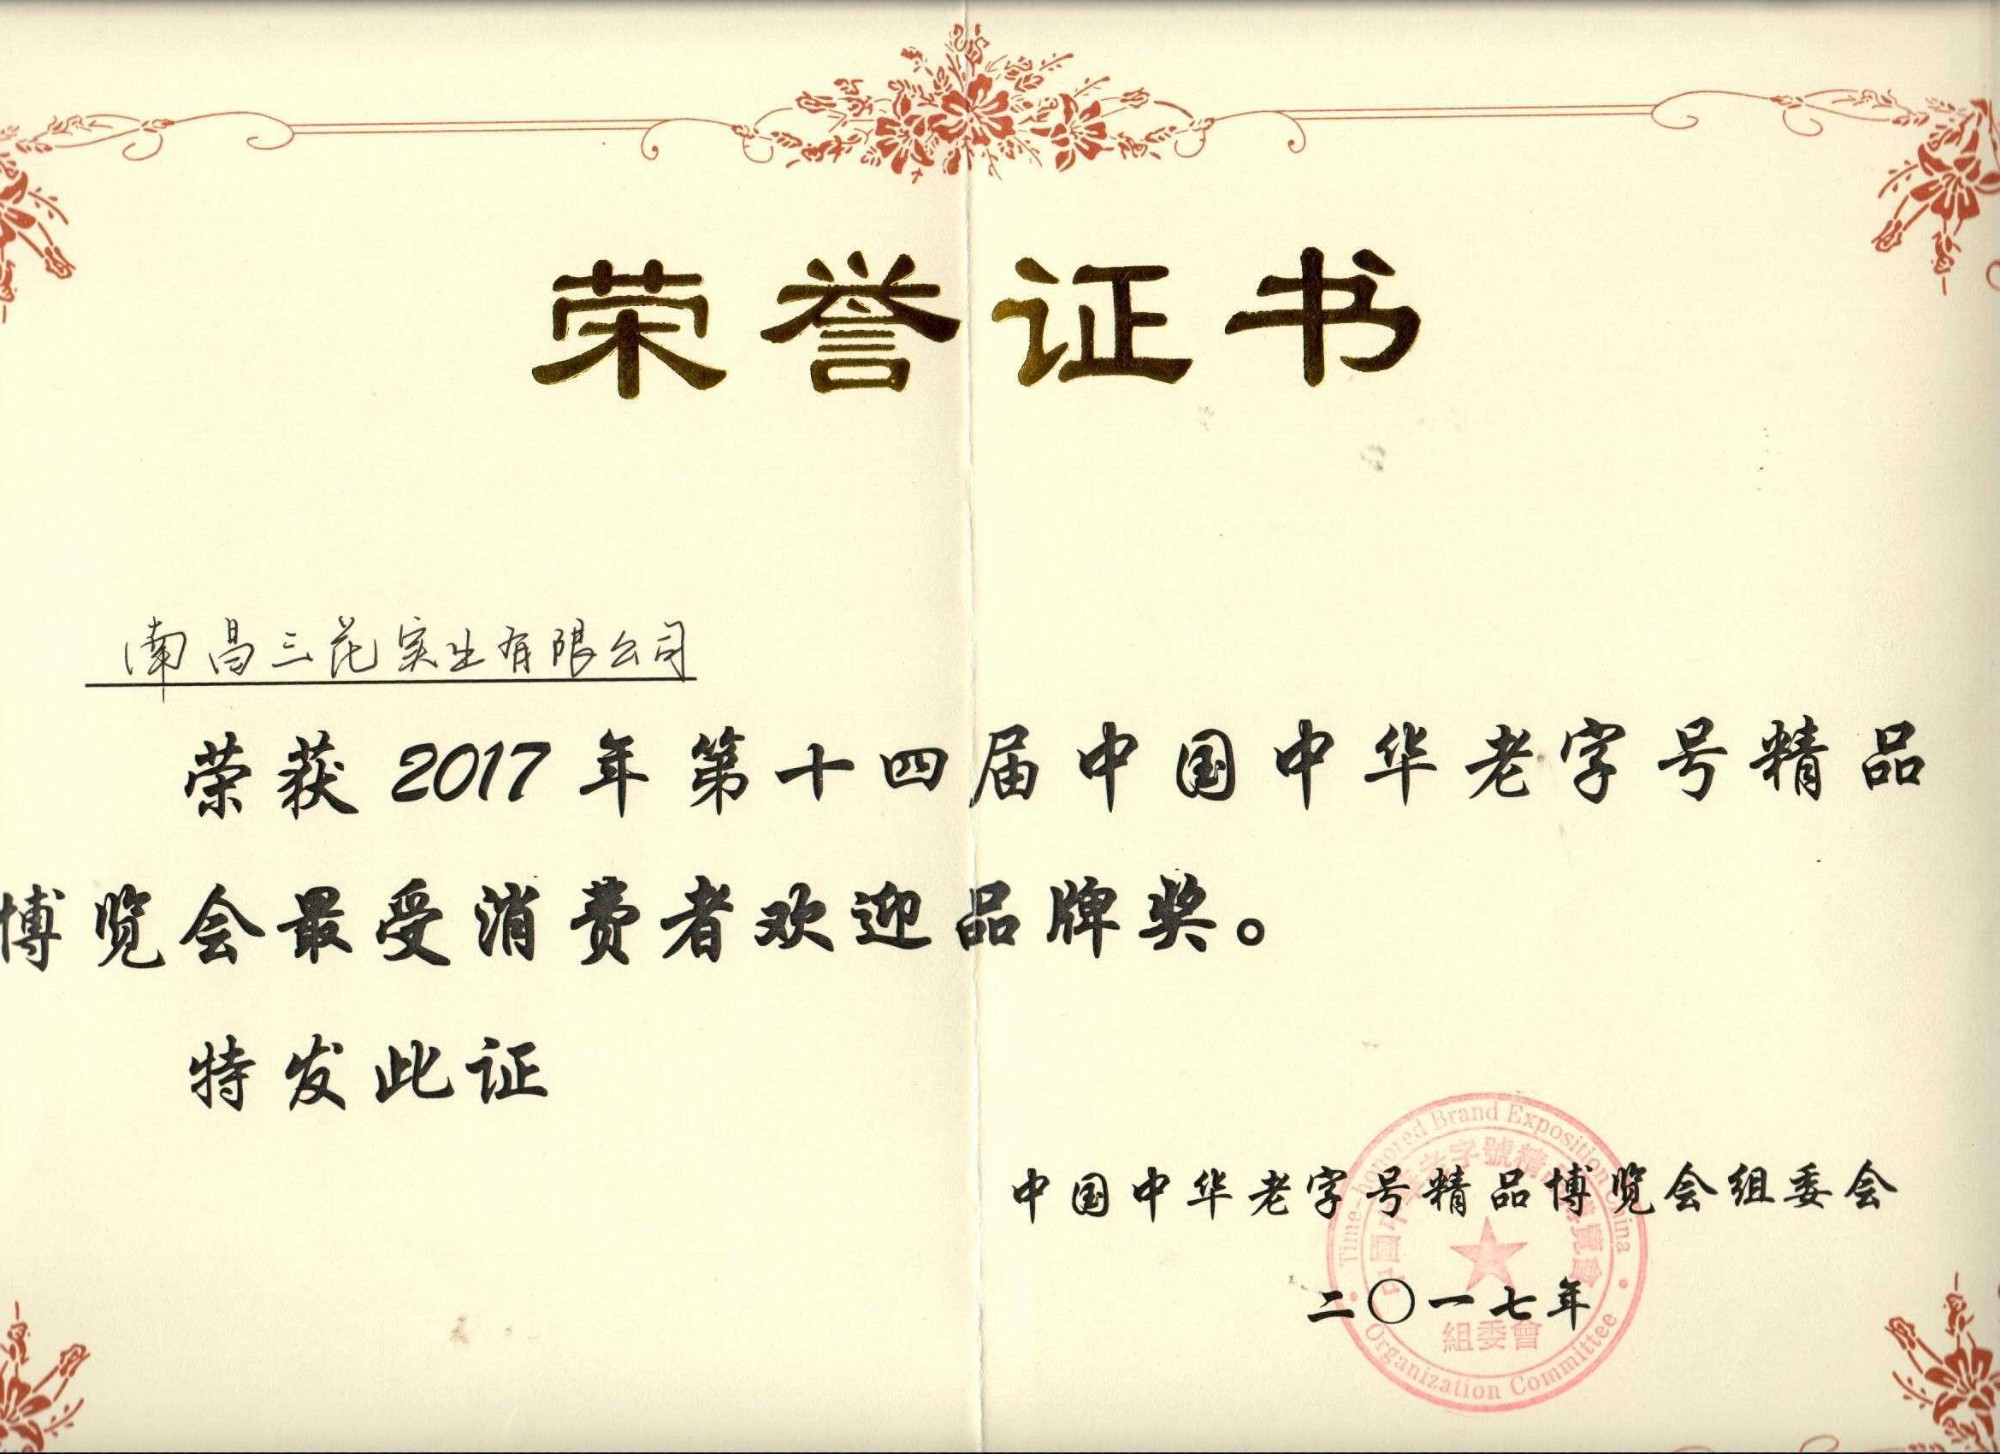 荣誉证书
南昌三花实业有限公司
荣获2017年第十四届中国中华老字号精品
博览会最受消费者欢迎品牌奖。
特发此证
中国中华老字号精品博览会组委会
二〇一七年
Time-honored Brand Exposition China
中國中華老字號精品博覽會
組委會
Organization Committee